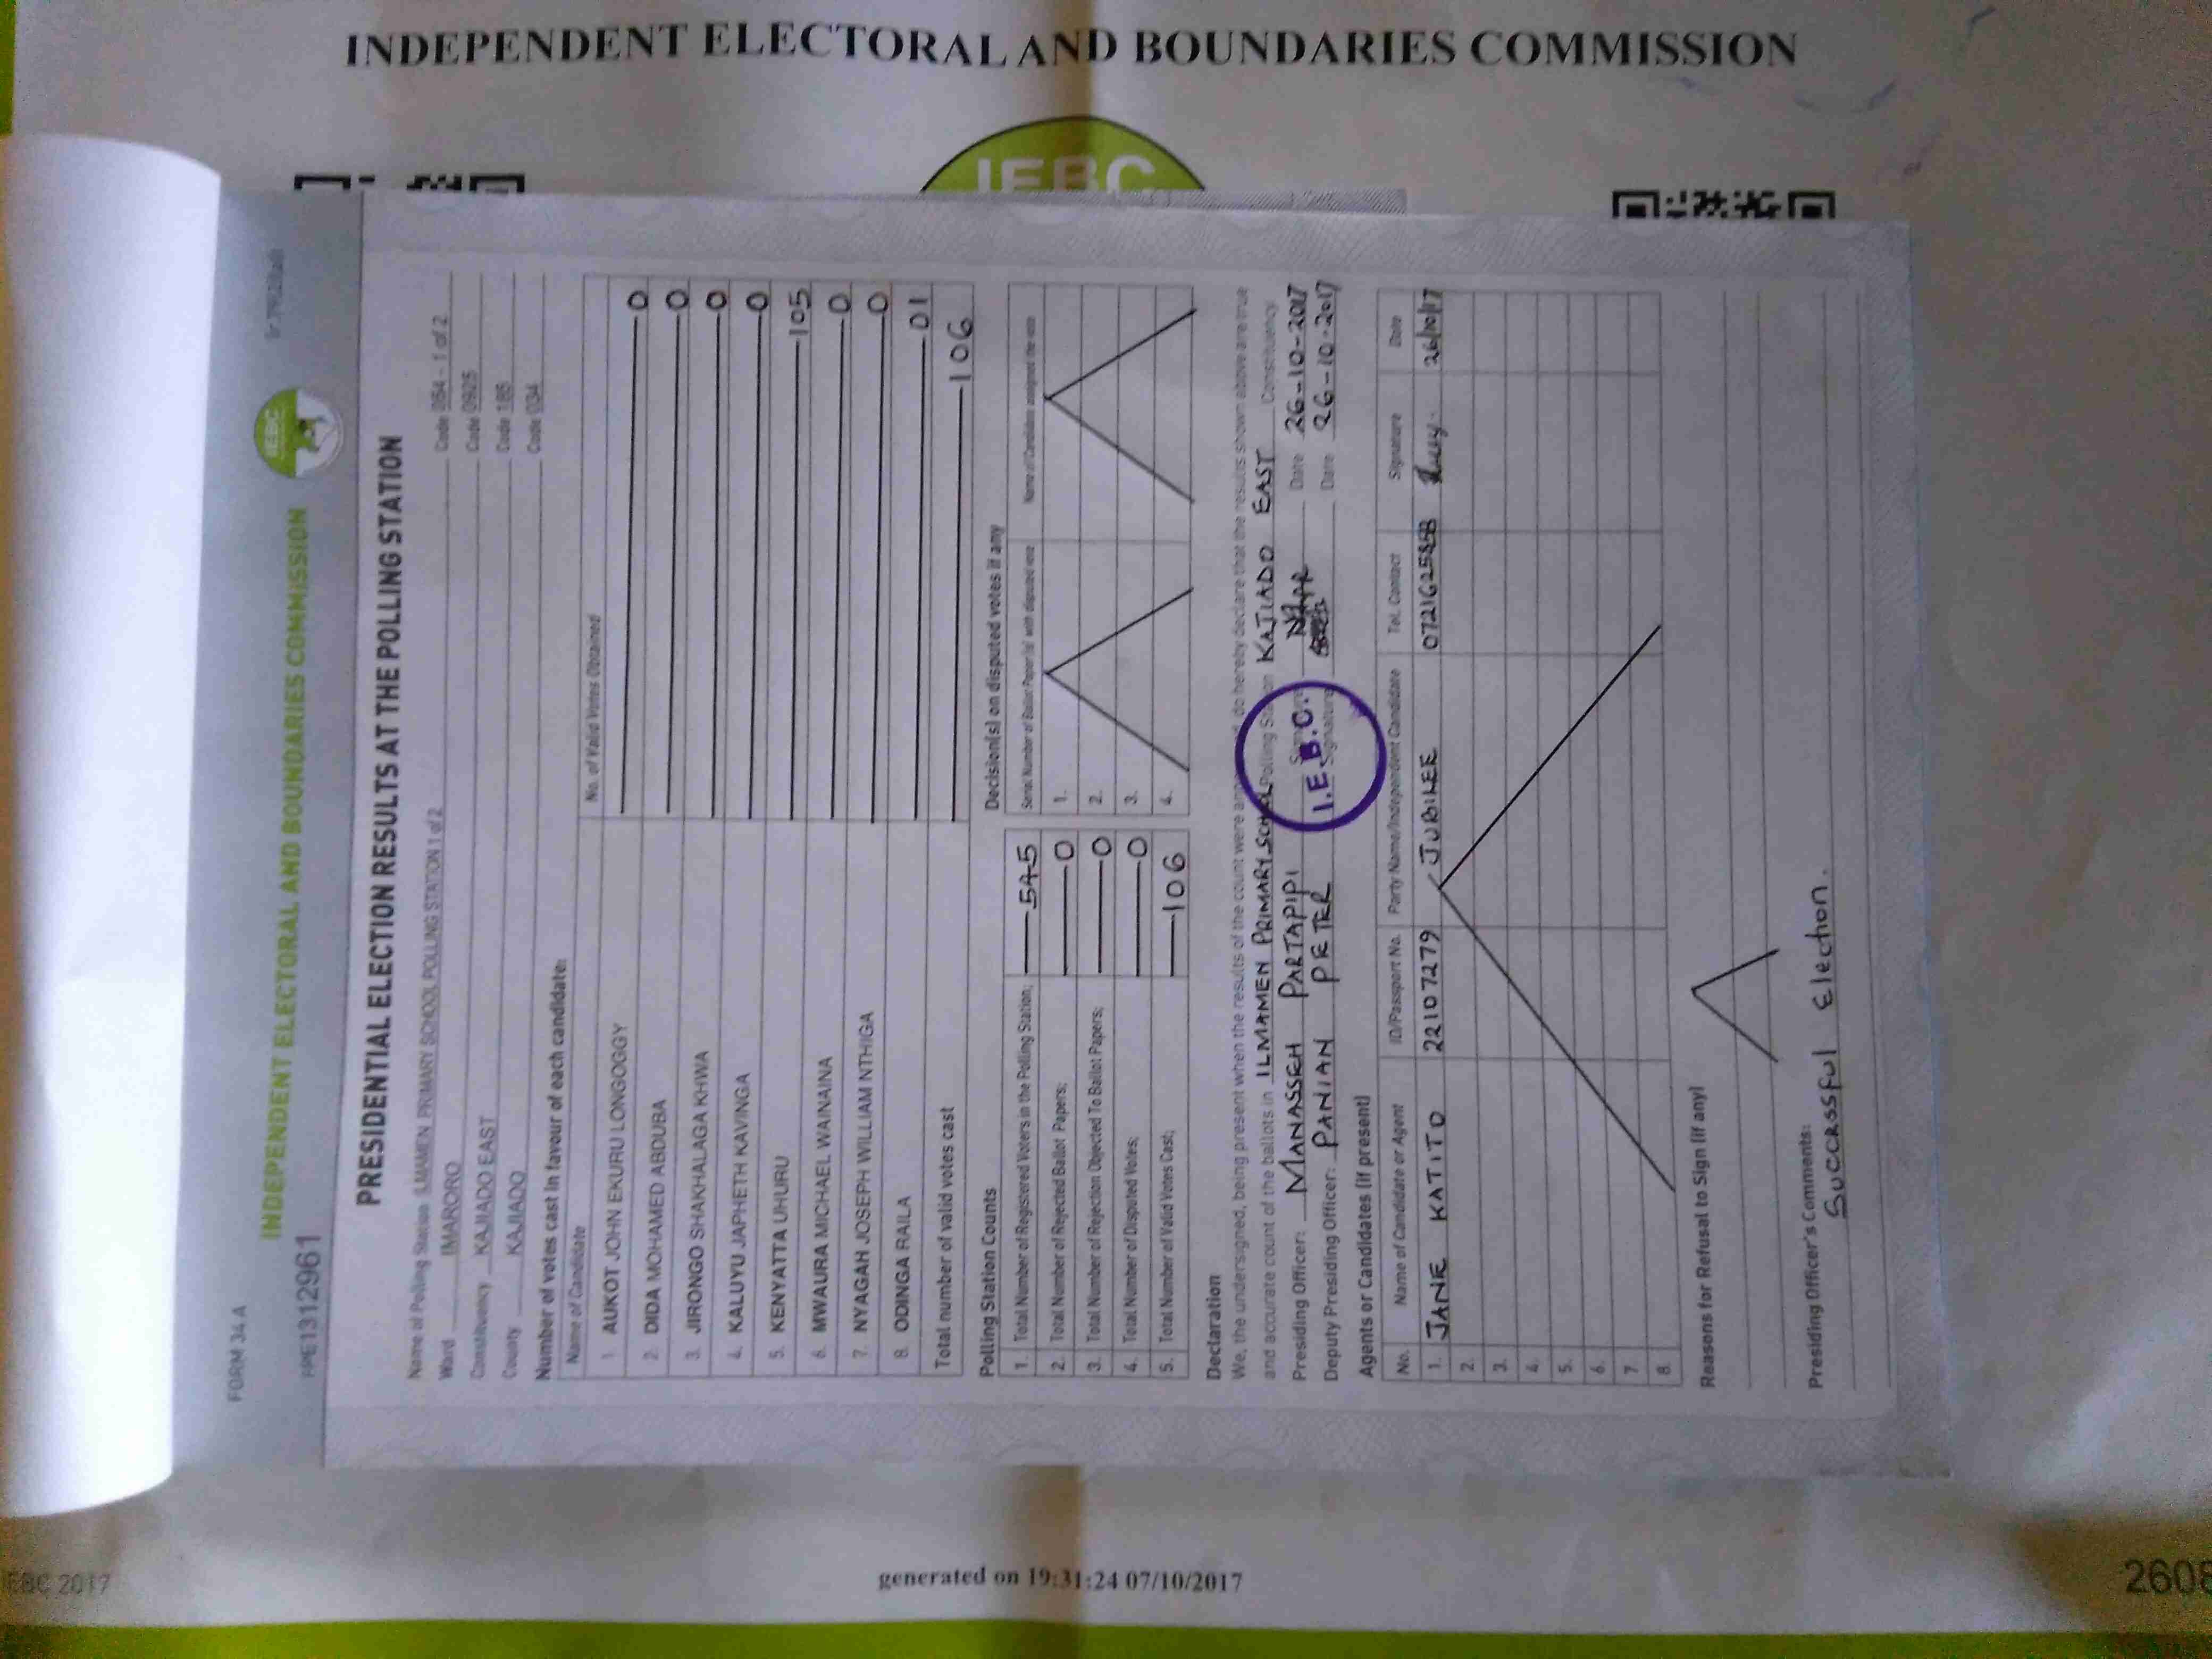 INDEPENDENT ELECTORAL AND BOUNDARIES COMMISSION
IEBC
FORM 34 A
INDEPENDENT ELECTORAL AND BOUNDARIES COMMISSION
IEBC
PPE1312961
PRESIDENTIAL ELECTION RESULTS AT THE POLLING STATION
Name of Polling Station ILMAMEN PRIMARY SCHOOL POLLING STATION 1 of 2 Code 084 - 1 of 2
Ward IMARORO Code 0925
Constituency KAJIADO EAST Code 185
County KAJIADO Code 034
Number of votes cast in favour of each candidate:
Name of Candidate No. of Valid Votes Obtained
1 AUKOT JOHN EKURU LONGOGGY 0
2. DIDA MOHAMED ABDUBA 0
3. JIRONGO SHAKHALAGA KHWA 0
4. KALUYU JAPHETH KAVINGA 0
5. KENYATTA UHURU 105
6. MWAURA MICHAEL WAINAINA 0
7. NYAGAH JOSEPH WILLIAM NTHIGA 0
8. ODINGA RAILA 01
Total number of valid votes cast 106
Polling Station Counts
1. Total Number of Registered Voters in the Polling Station; 545
2. Total Number of Rejected Ballot Papers; 0
3. Total Number of Rejection Objected To Ballot Papers; 0
4. Total Number of Disputed Votes; 0
5. Total Number of Valid Votes Cast; 106
Decision(s) on disputed votes if any
Serial Number of Ballot Paper(s) with disputed vote Name of Candidate assigned the vote
1.
2.
3.
4.
Declaration
We, the undersigned, being present when the results of the count were do hereby declare that the results shown above are true
and accurate count of the ballots in ILMAMEN PRIMARY SCHOOL Polling Station KAJIADO EAST Constituency.
Presiding Officer: MANASSEH PARTAPIPI Date 26-10-2017
Deputy Presiding Officer: PANIAN PETER Signature Date 26-10-2017
I.E.B.C.
Agents or Candidates (if present)
No. Name of Candidate or Agent ID/Passport No. Party Name/Independent Candidate Tel. Contact Signature Date
1. JANE KATITO 22107279 JUBILEE 26/10/17
2.
3.
4.
5.
6.
7
8.
Reasons for Refusal to Sign (if any)
Presiding Officer's Comments:
Successful Election.
IEBC 2017
generated on 19:31:24 07/10/2017
2608